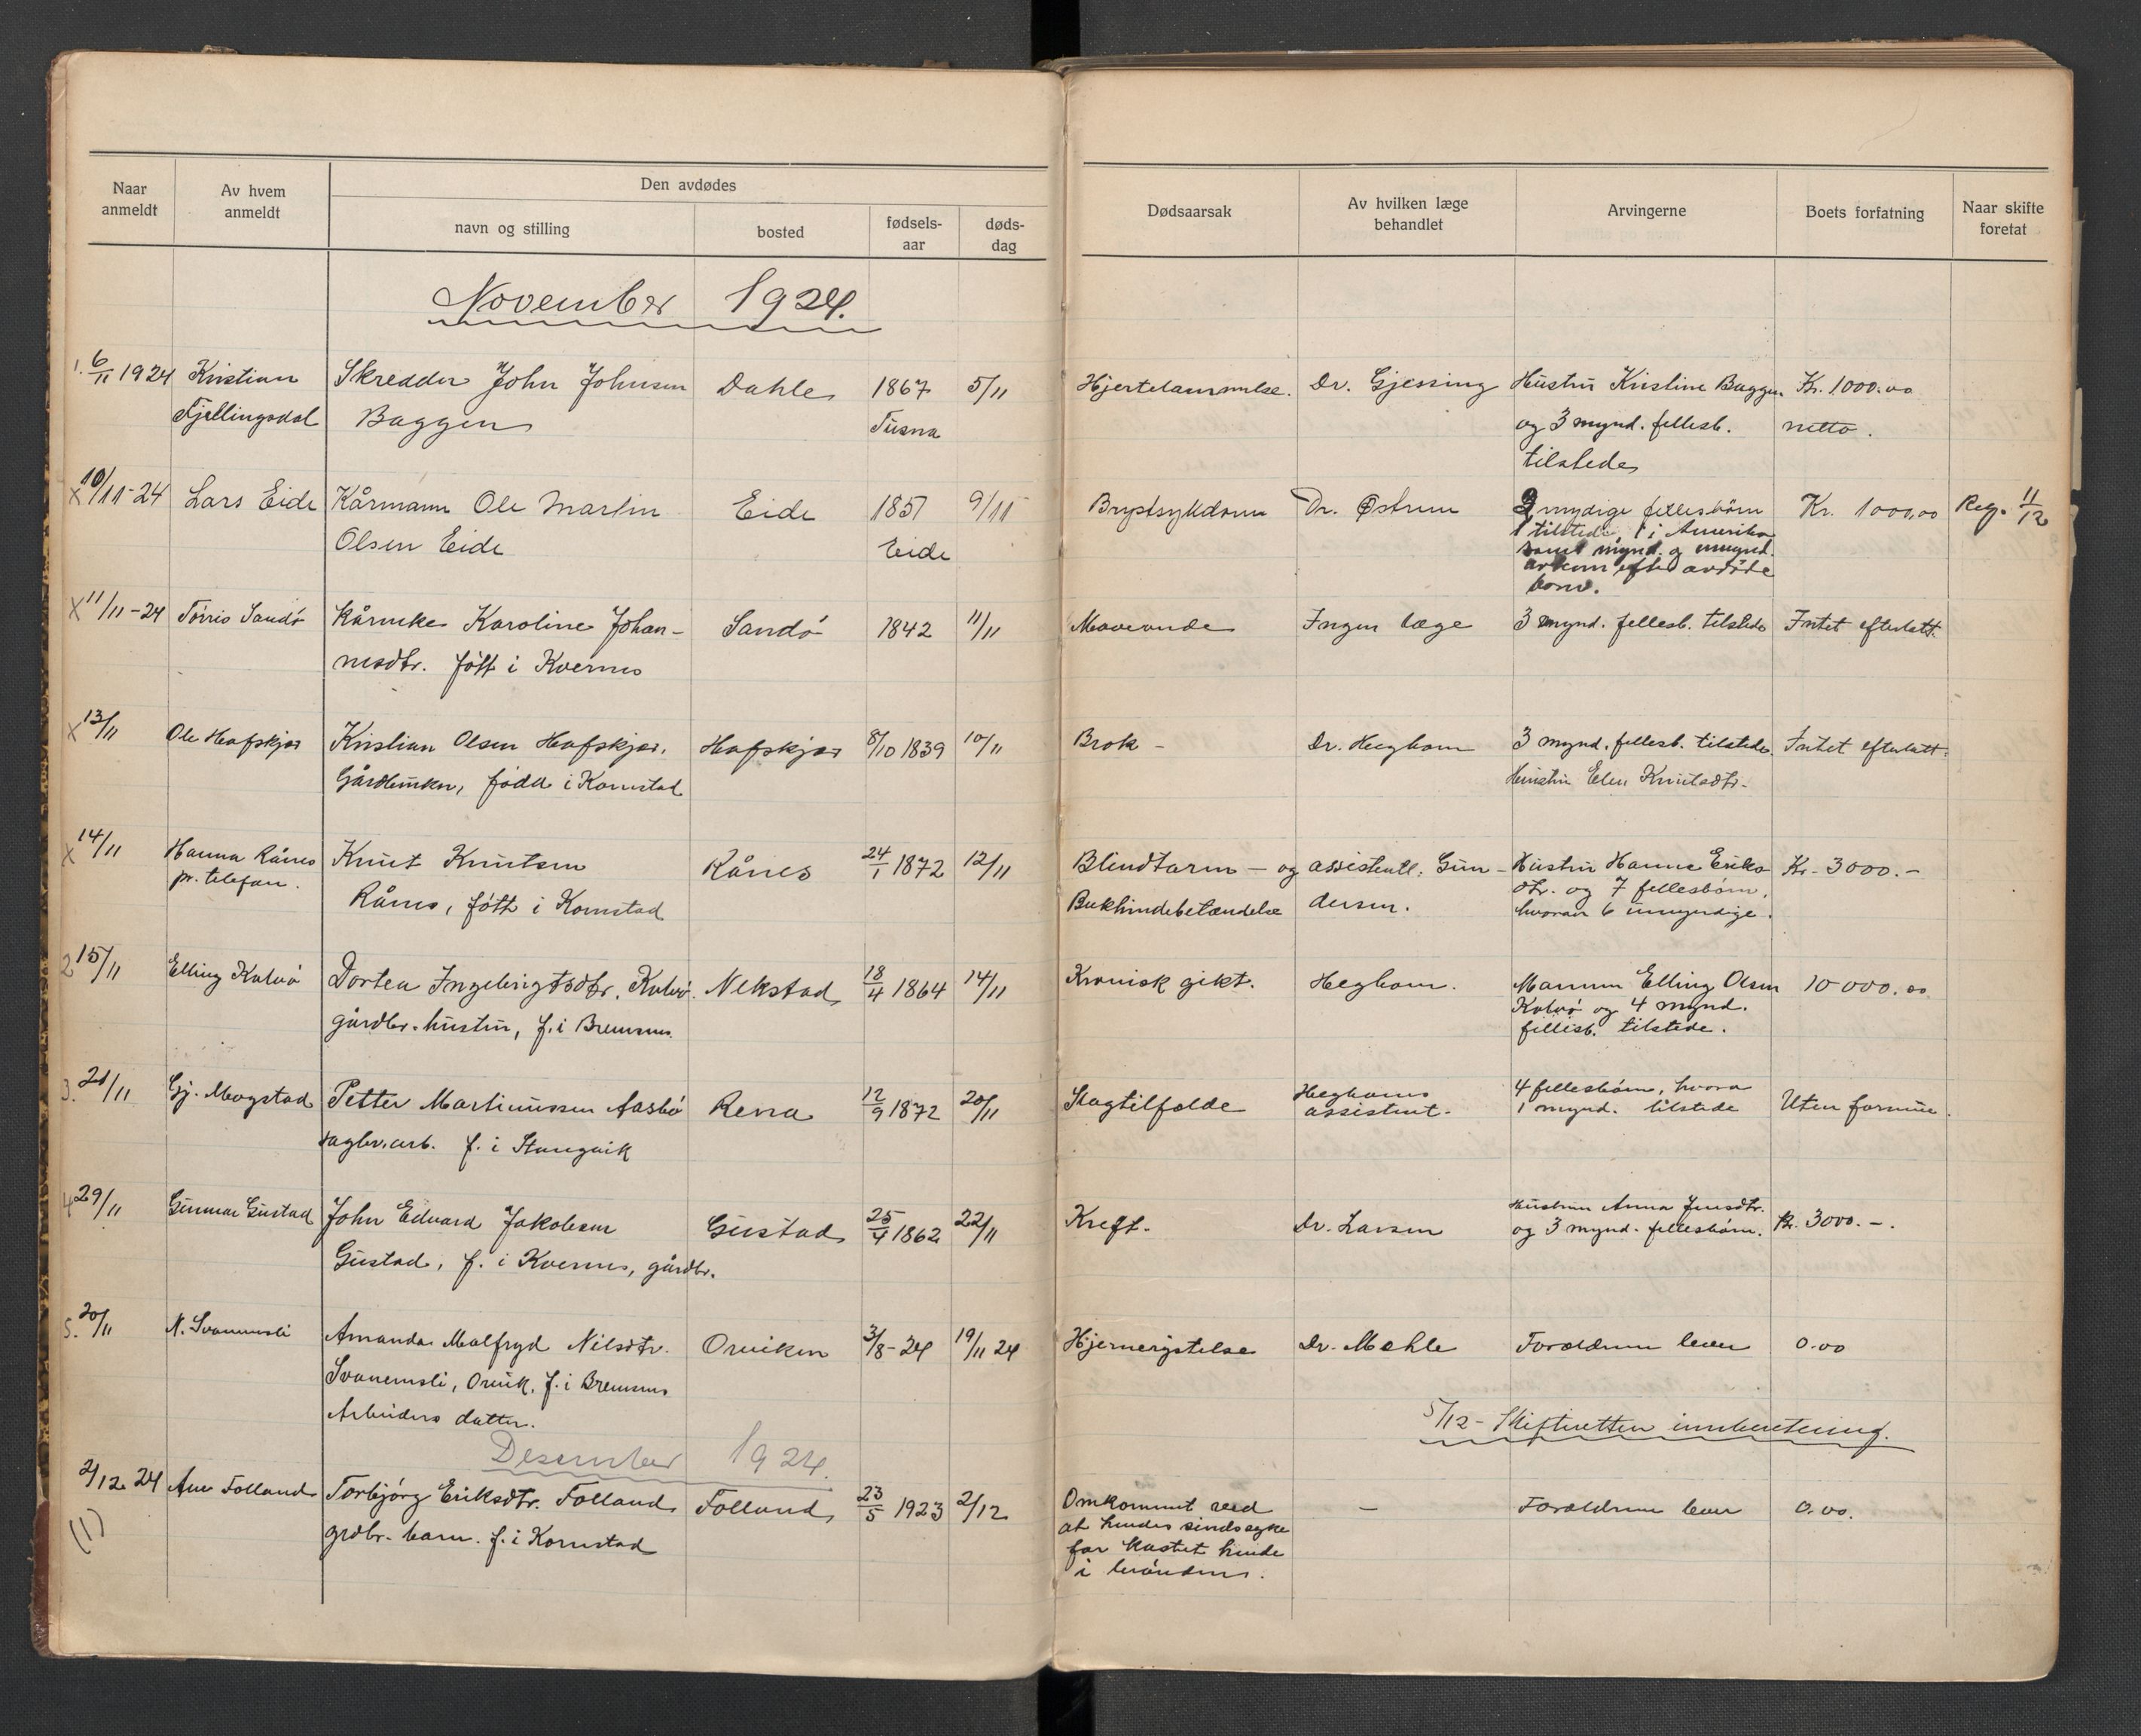 Naar anmeldt
Av hvem anmeldt
Den avdødes
navn og stilling
bosted
fødsels-aar
døds-dag
Dødsaarsak
Av hvilken læge behandlet
Arvingerne
Boets forfatning
Naar skifte foretat
November 1924.
1. 6/11 1924 Kristian Skredder John Johnsen Dahle 1867 5/11 Hjertelammelse. Dr. Gjessing Hustru Kristine Baggen Kr. 1000.00
Fjellingsdal Baggen Tusna og 3 mynd. fellesb. netto.
tilstede
x 10/11-24 Lars Eide Kårmann Ole Martin Eide 1851 9/11 Brystsykdom Dr. Østrem 2 myndige fellesbörn Kr. 1000,00 Reg. 11/12
Olsen Eide Eide 1 tilstede, 1 i Amerika
samt mynd. og umynd.
avkom efter avdöde
born.
x 11/11-24 Törris Sandö Kårmke Karoline Johan- Sandö 1842 11/11 Maveonde Ingen læge 3 mynd. fellesb. tilstede Intet efterlatt.
nesdtr. fött i Kvernes
x 13/11 Ole Hafskjær Kristian Olsen Hafskjær. Hafskjær 8/10 1839 10/11 Brok - Dr. Heghom 3 mynd. fellesb. tilstede. Intet efterlatt.
Gårdbruker, född i Kornstad Hustru Elen Knutsdtr.
x 14/11 Hanna Rånes Knut Knutsen Rånes 24/1 1872 12/11 Blindtarm - og assistentl. Gun- Hustru Hanna Eriks- Kr. 3000.-
pr. telefon. Rånes, fött i Kornstad Bukhindebetændelse dersen. dtr. og 7 fellesbörn,
hvorav 6 umyndige.
2 15/11 Elling Kalvö Dortea Ingebrigtsdtr. Kalvö. Nekstad 18/4 1864 14/11 Kronisk gikt. Heghom. Mannen Elling Olsen 10 000.00
gårdbr. hustru, f. i Bremsnes. Kalvö og 4 mynd.
fellesb. tilstede.
3. 21/11 Gj. Mogstad Petter Martinussen Aasbö Rensa 12/9 1872 20/11 Slagtilfælde Heghoms 4 fellesbörn, hvora
sagbr.arb. f. i Stangvik assistent. 1 mynd. tilstede Uten formue.
4 29/11 Gunnar Gustad John Edvard Jakobsen Gustad 25/4 1862 22/11 Kreft. Dr. Larsen Hustrun Anna Jensdtr. Kr. 3000.-.
Gustad, f. i Kvernes, gårdbr. og 3 mynd. fellesbörn.
5. 20/11 N. Svanemsli Amanda Malfryd Nilsdtr. Orviken 3/8-24 19/11 24 Hjernerystelse Dr. Mehle Forældrene lever 0.00
Svanemsli, Orvik, f. i Bremsnes
Arbeiders datter. 5/12 - Skifteretten innberetning.
Desember 1924.
2/12 24 Ane Folland Torbjörg Eriksdtr. Folland Folland 23/5 1923 2/12 Omkommet ved - Forældrene lever 0.00.
(1) grdbr. barn. f. i Kornstad at hendes sindssyke
far kastet hende
i brönden.